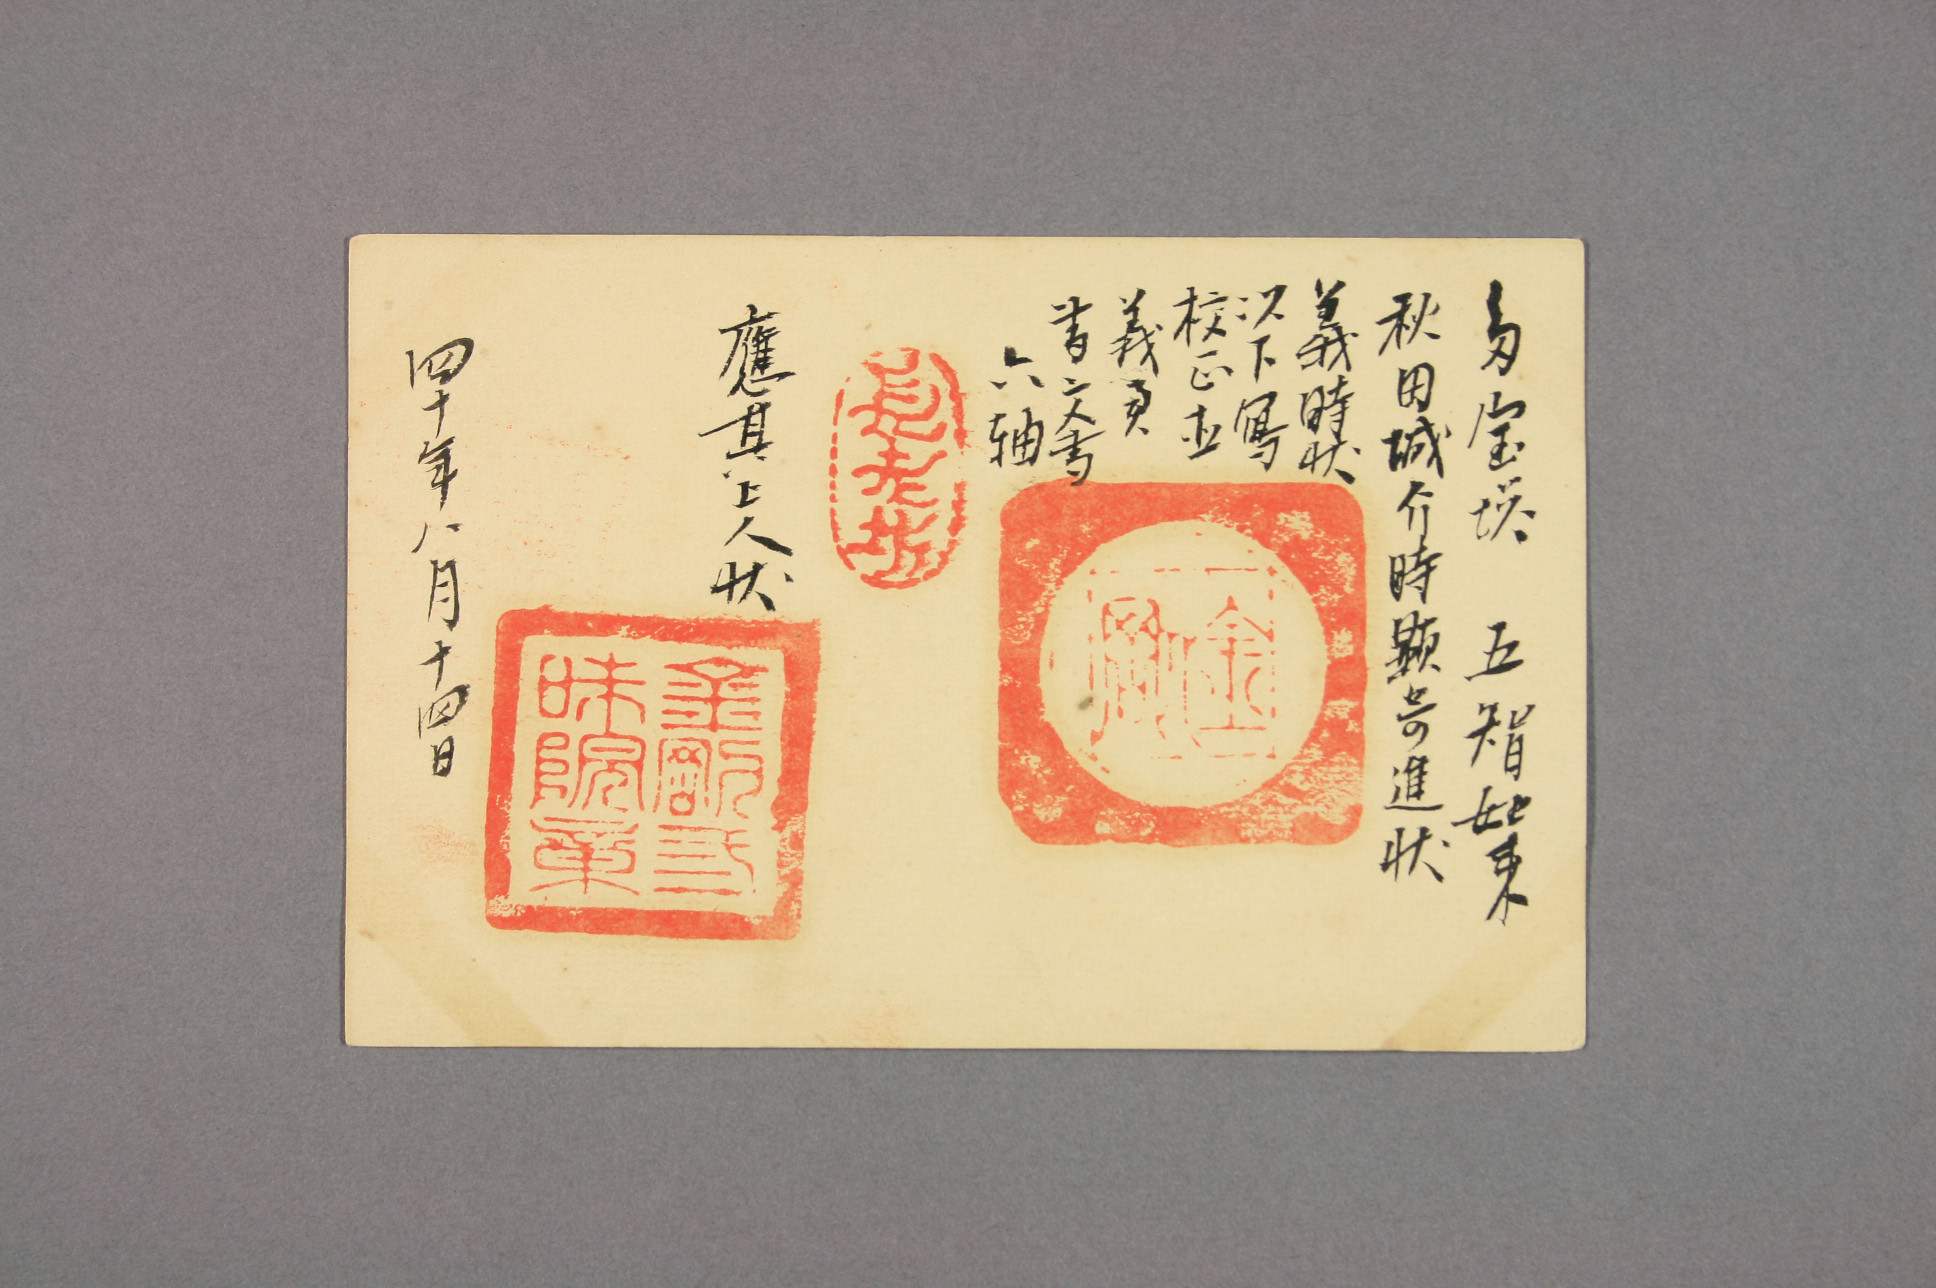 多宝塔 五智如来
秋田城介時顕寄進状
義時状
以下写
校正並
義貞
書文書
六軸
應其上人状
四十年八月十四日
金剛
金剛三
昧院章